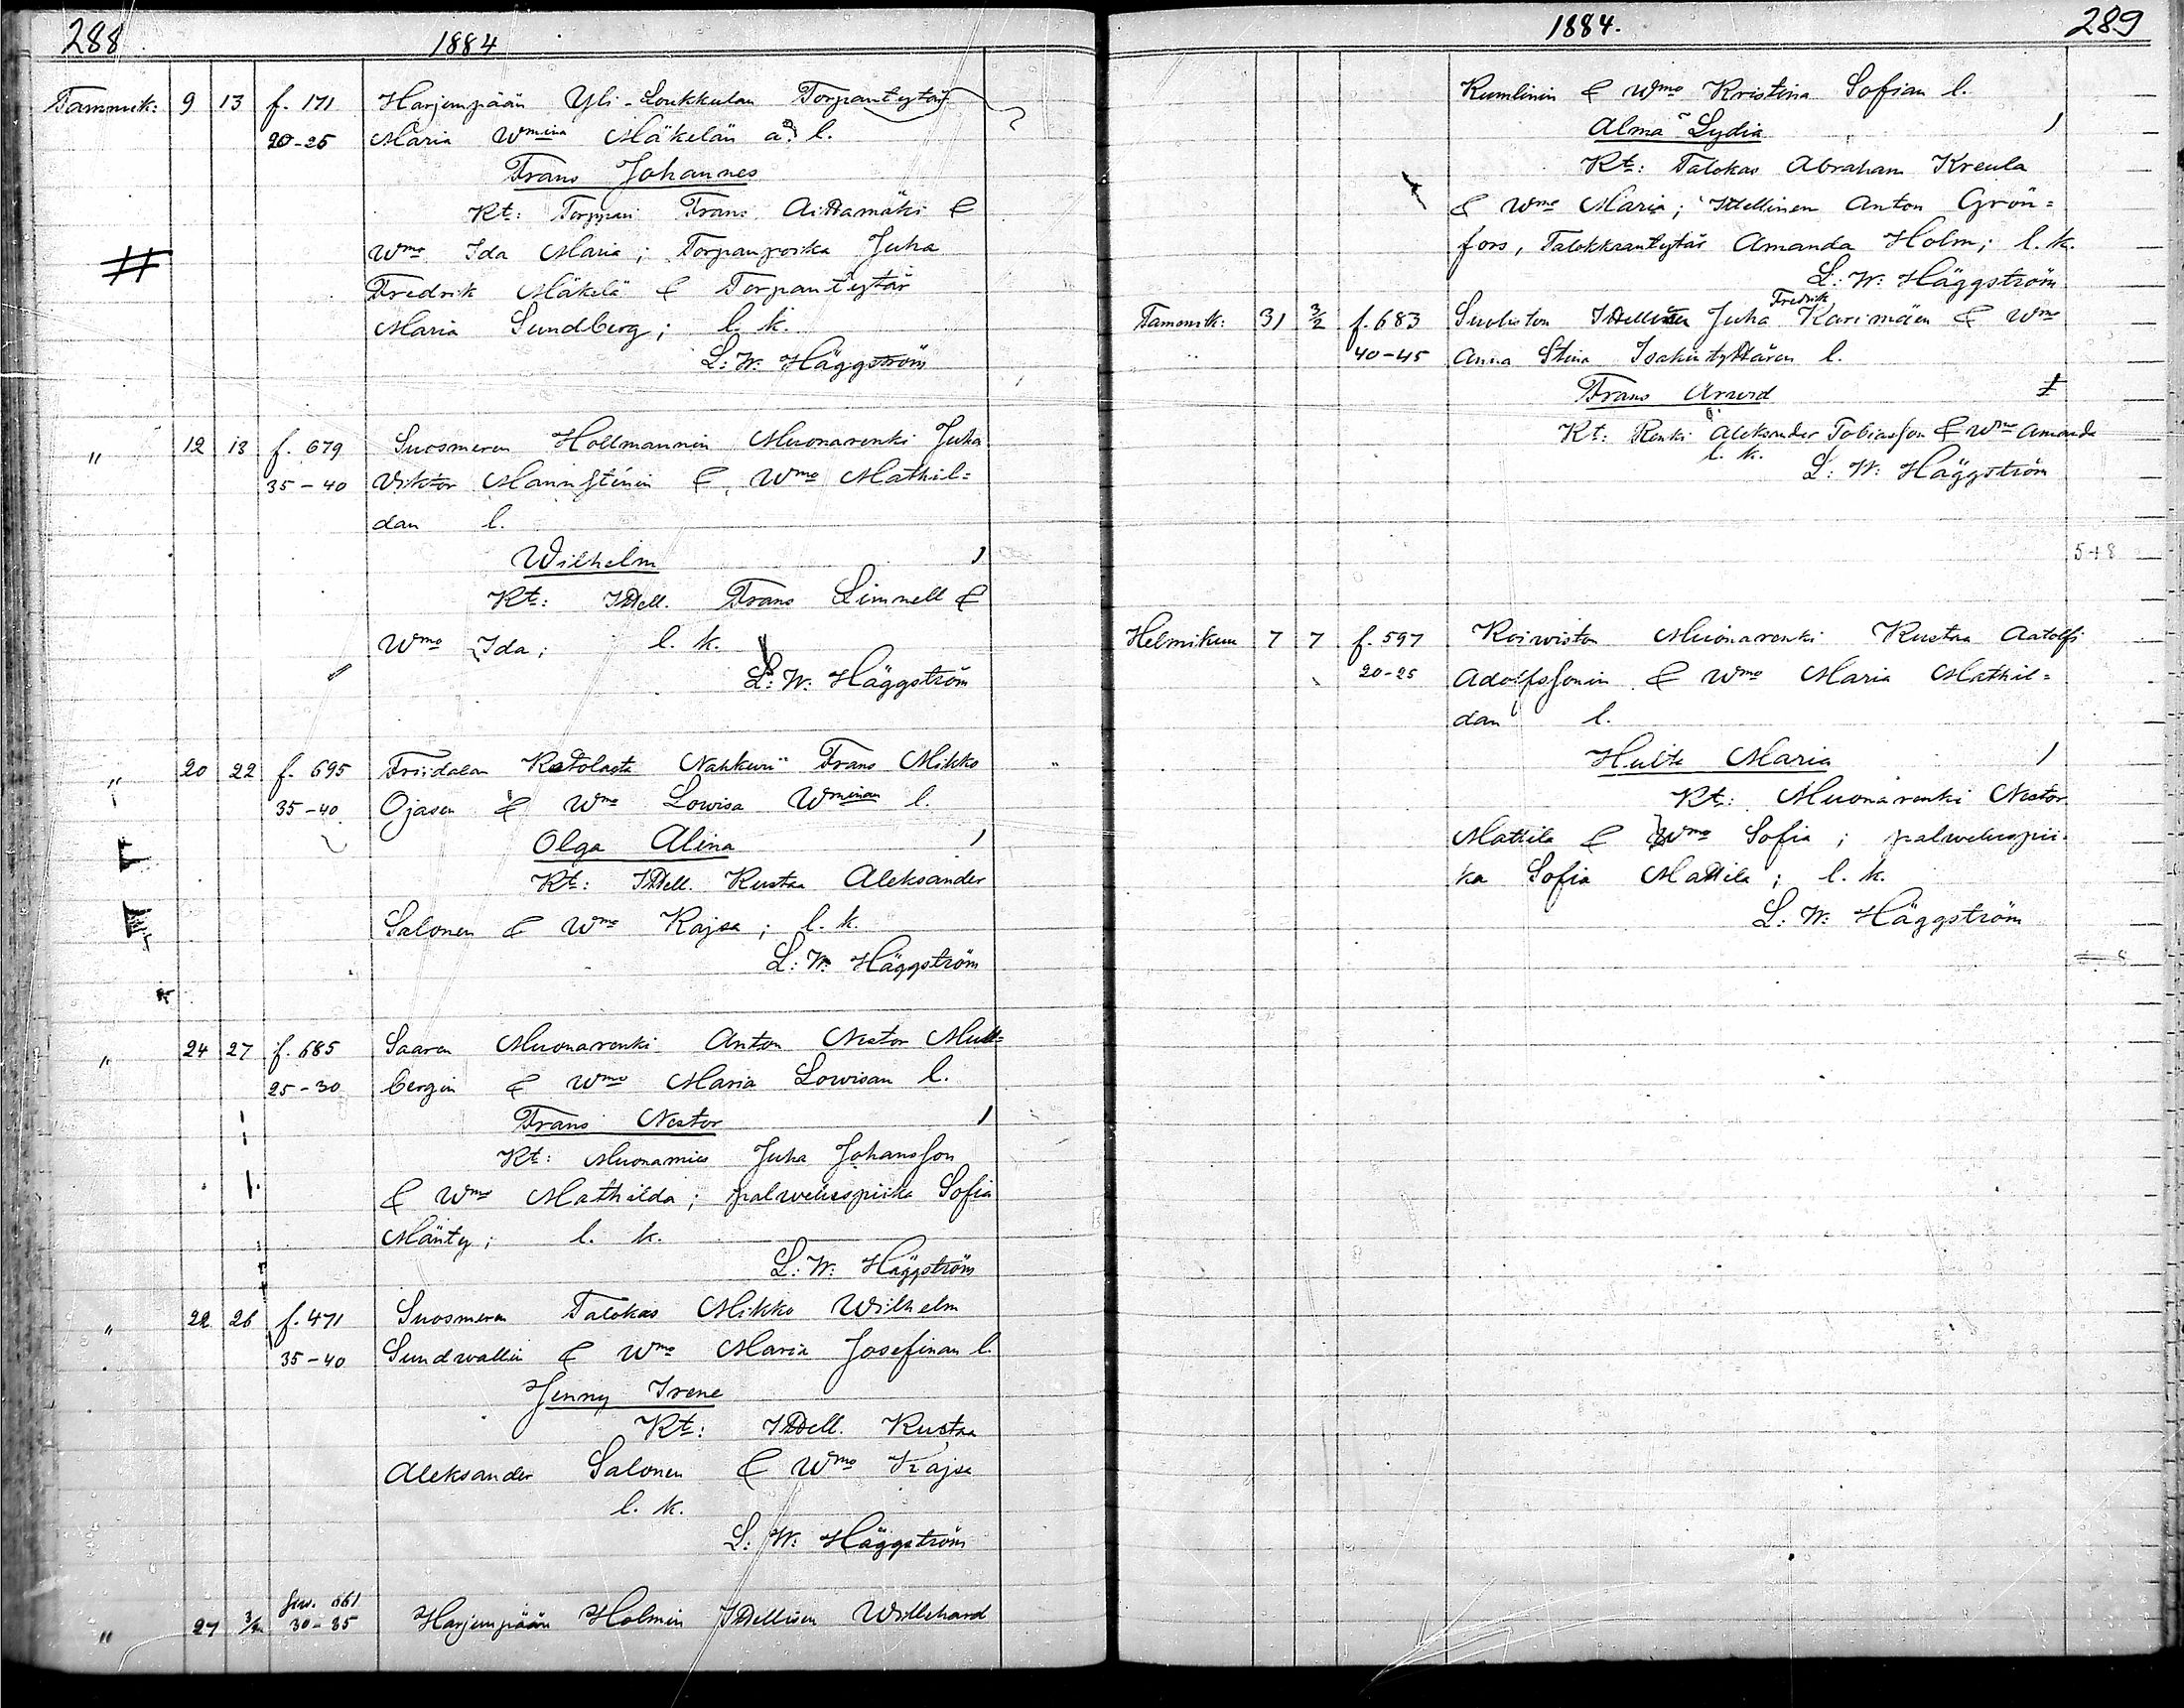 288
1884
Tammik: 9 13 f. 171 Harjunpään Yli-Loukkulan Torpantytär
20-25 Maria Wmina Mäkelän a. l.
Frans Johannes
Kt: Torppari Frans Aittamäki &
Wmo Ida Maria; Torpanpoika Juha
Fredrik Mäkelä & Torpantytär
Maria Sundberg; l. k.
L: W: Häggström
" 12 13 f. 679 Suosmeren Hollmannin Muonarenki Juha
35-40 Viktor Mannsténin & Wmo Mathil=
dan l.
Wilhelm
Kt: Ittell. Frans Limnell &
Wmo Ida; l. k.
L: W: Häggström
" 20 22 f. 695 Friidalan Nahkuri Frans Mikko
35-40 Ojasen & Wmo Lowisa Wminan l.
Olga Alina
Kt: Ittell. Kustaa Aleksander
Salonen & Wmo Kajsa; l. k.
L: W: Häggström
" 24 27 f. 685 Saaren Muonarenki Anton Nestor Mull=
25-30 bergin & Wmo Maria Lowisan l.
Frans Nestor
Kt: Muonamies Juha Johansson
& Wmo Mathilda; palweluspiika Sofia
Mänty; l. k.
L: W: Häggström
" 22 26 f. 471 Suosmeren Talokas Mikko Wilhelm
35-40 Sundwallin & Wmo Maria Josefinan l.
Jenny Irene
Kt: Ittell. Kustaa
Aleksander Salonen & Wmo Kajsa
l. k.
L: W: Häggström
" 27 3/2 661
30-35 Harjunpään Holmin Ittellisen Willehard
1884.
289
Rumlinin & Wmo Kristina Sofian l.
Alma Lydia
Kt: Talokas Abraham Kreula
& Wmo Maria; Ittellinen Anton Grön=
fors, Talokkaantytär Amanda Holm; l. k.
L: W: Häggström
Tammik: 31 3/2 f. 683 Ittellisen Juha Fredrik Karimäen & Wmo
40-45 Anna Stina Isakintyttären l.
Frans Arwid
Kt: Renki Aleksander Tobiasson & Wmo Amanda
l. k.
L: W: Häggström
Helmikuu 7 7 f. 597 Koiwiston Muonarenki Kustaa Aatolfi
20-25 Adolfssonin & Wmo Maria Mathil=
dan l.
Hulta Maria
Kt: Muonarenki Nestor
Mattila & Wmo Sofia; palweluspii=
ka Sofia Mattila; l. k.
L: W: Häggström